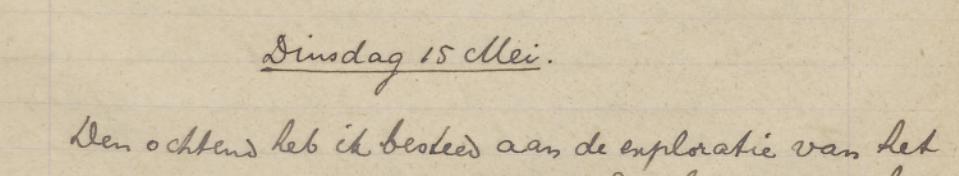 Dinsdag 15 Mei.
Den ochtend heb ik besteed aan de exploratie van het